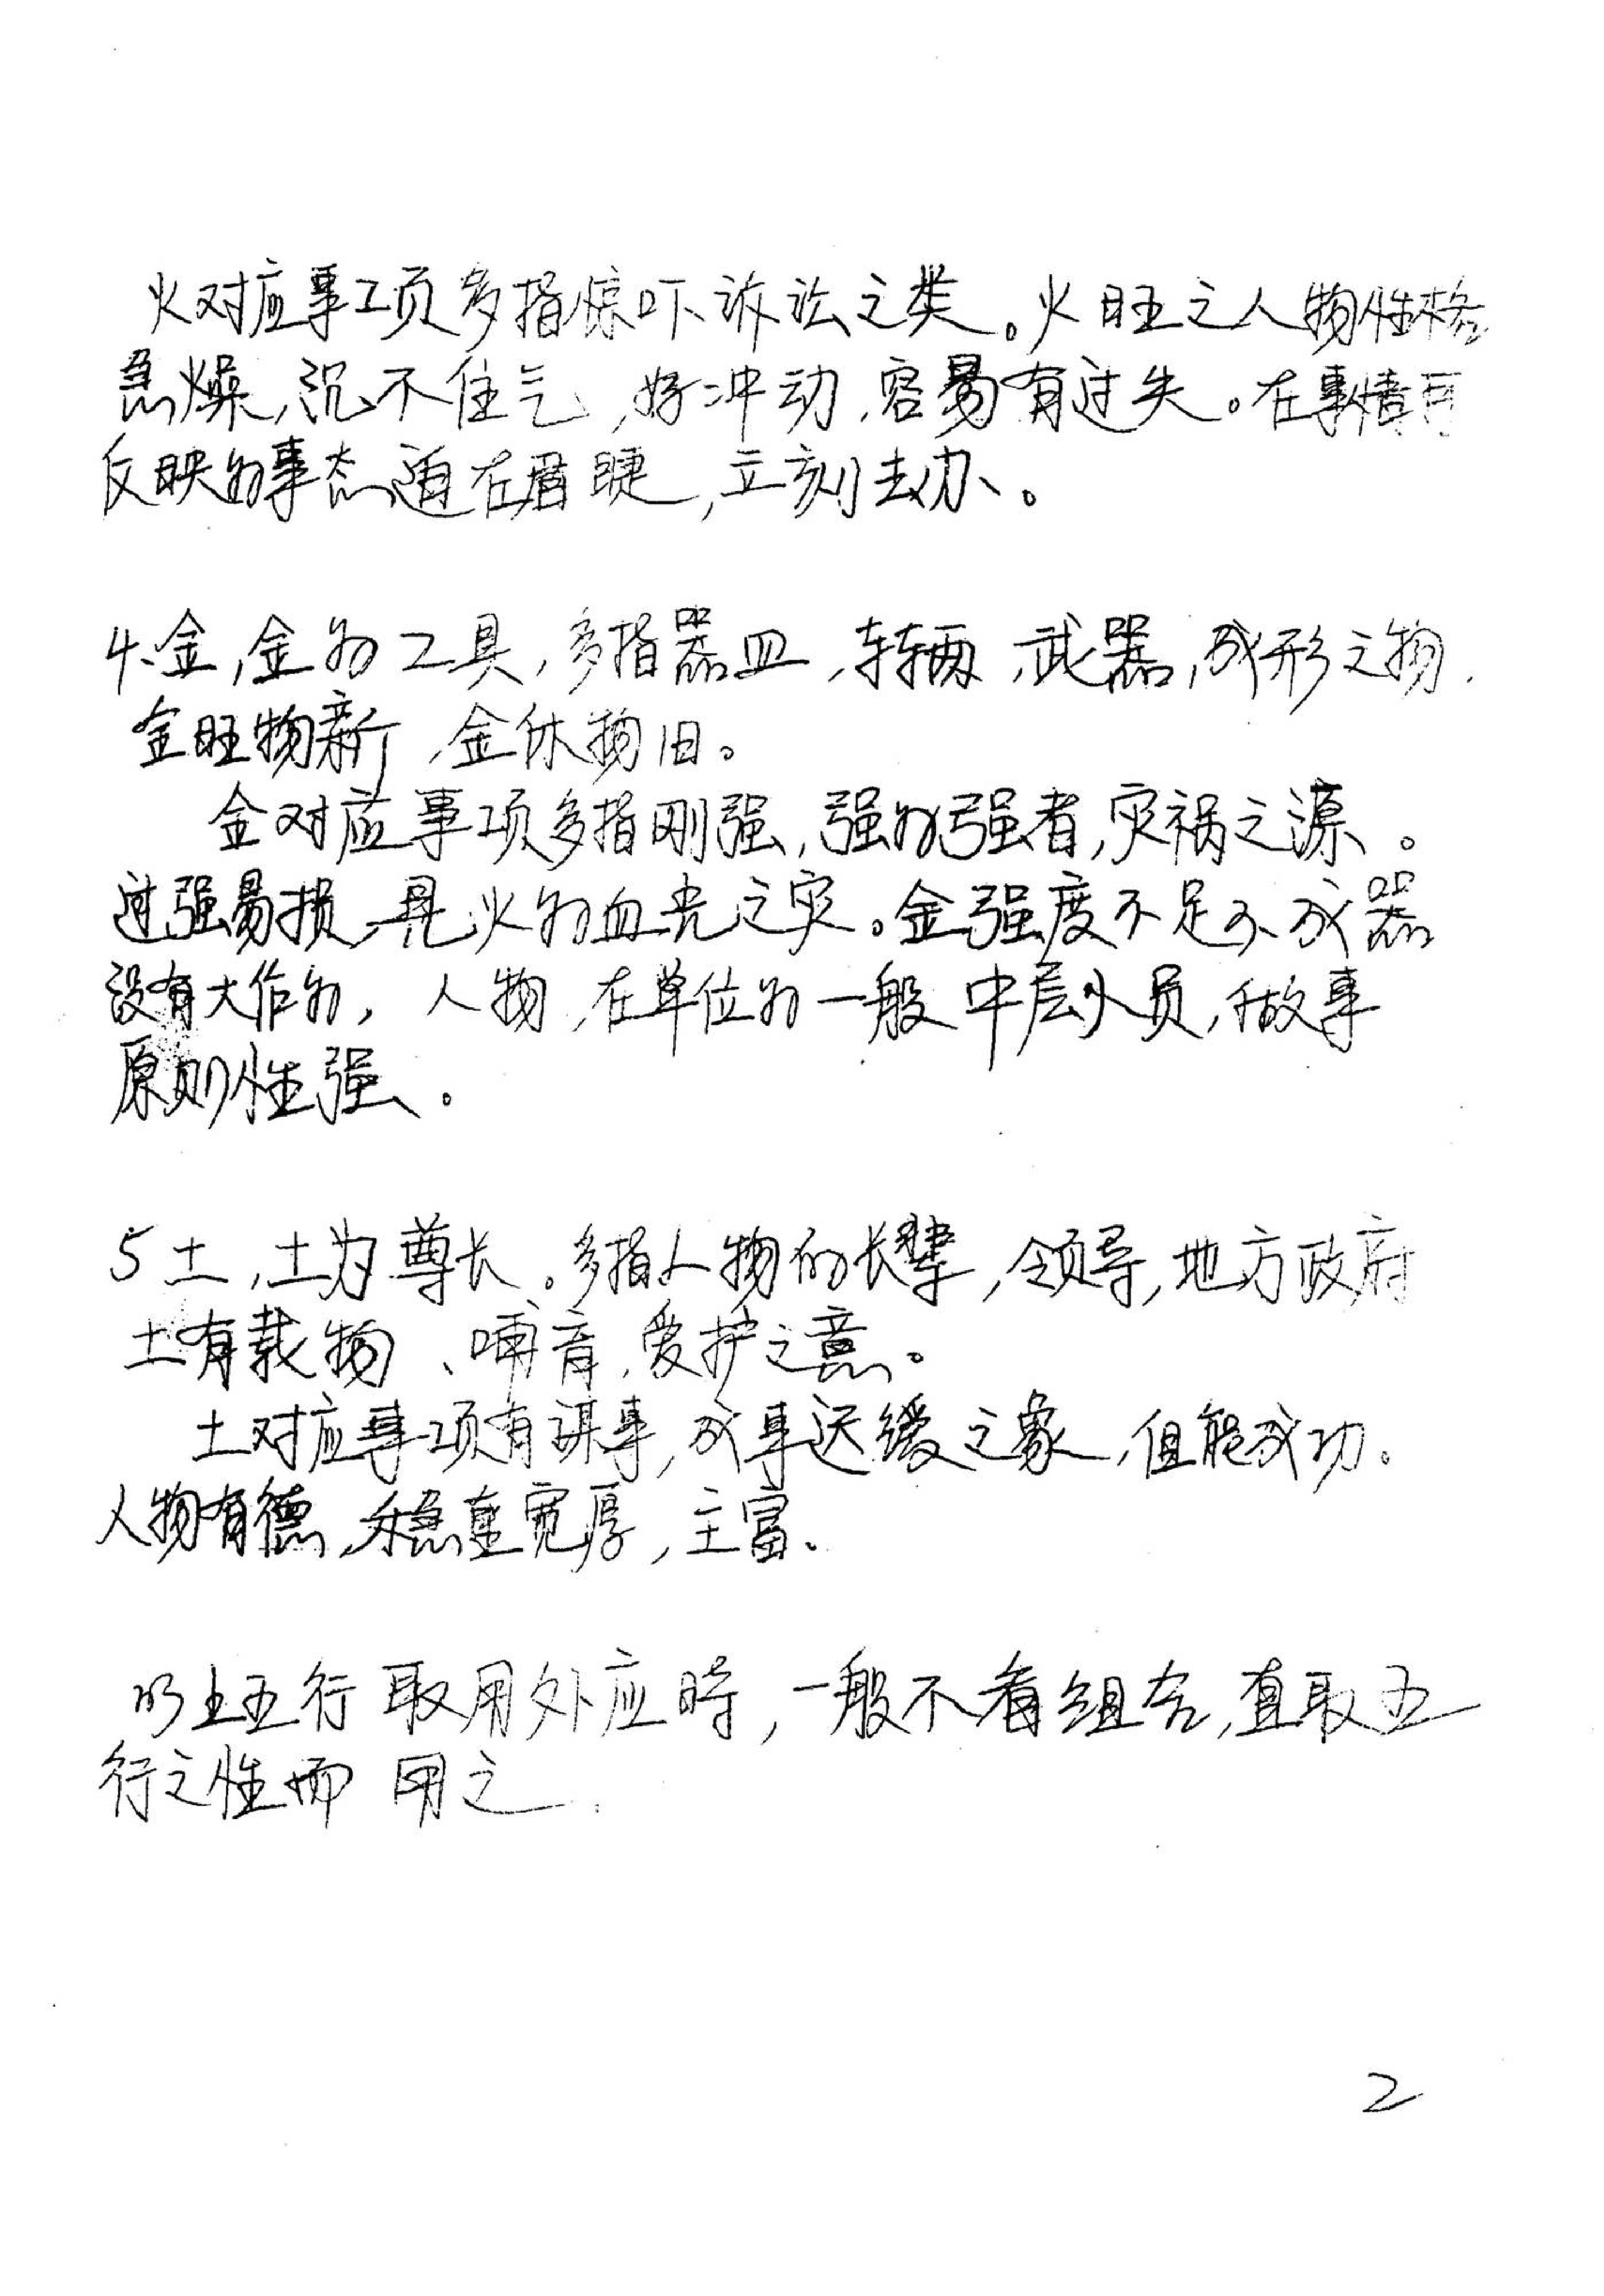 火对应事项多指惊吓诉讼之类。火旺之人物性格
急燥,沉不住气,好冲动,容易有过失。在事情可
反映为事态迫在眉睫,立刻去办、。
4、金,金为工具,多指器皿,车辆,武器,成形之物,
金旺物新,金休物旧。
金对应事项多指刚强,强为强者,灾祸之源。
过强易损,见火为血光之灾。金强度不足不成器
没有大作为,人物,在单位为一般中层人员,做事
原则性强。
5土,土为尊长。多指人物的长辈,领导,地方政府
土有载物、哺育,爱护之意。
土对应事项有谋事,成事迟缓之象,但能成功。
人物有德,稳重宽厚,主富.
以上五行取用外应时,一般不看组合,直取五
行之性而用之.
2